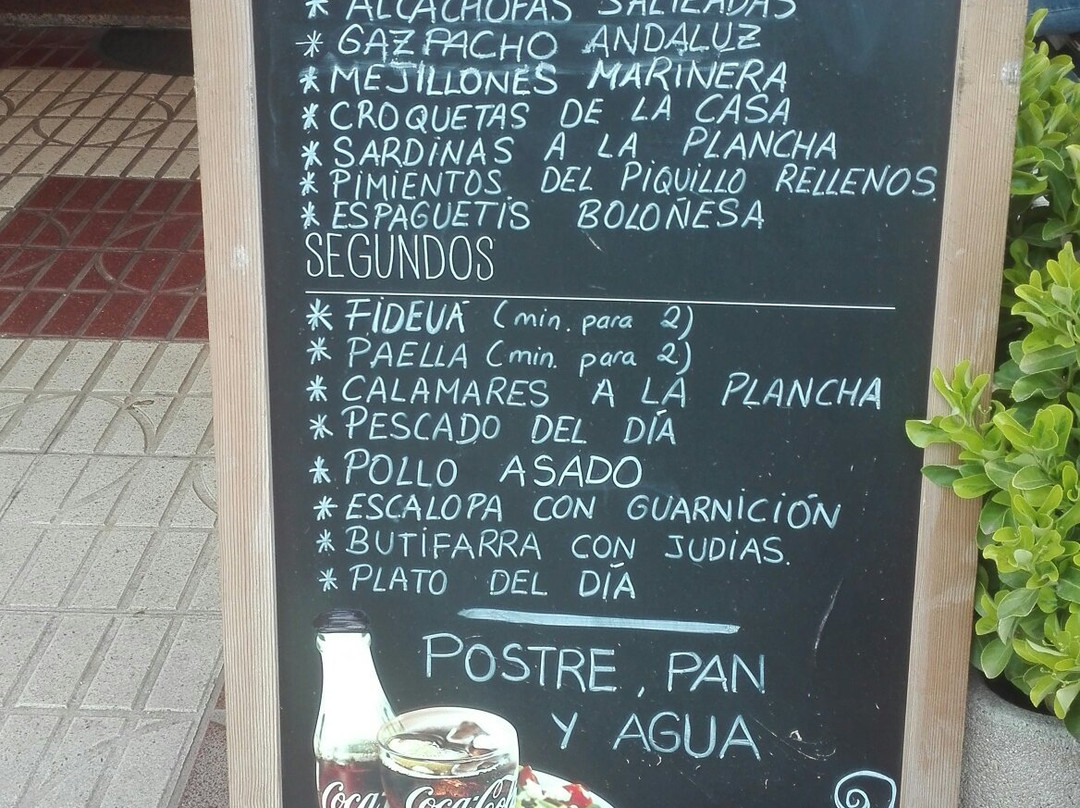 * ALCACHOFAS SALTEADAS
* GAZPACHO ANDALUZ
* MEJILLONES MARINERA
* CROQUETAS DE LA CASA
* SARDINAS A LA PLANCHA
* PIMIENTOS DEL PIQUILLO RELLENOS.
* ESPAGUETIS BOLOÑESA
SEGUNDOS
* FIDEUÁ (min. para 2)
* PAELLA (min. para 2)
* CALAMARES A LA PLANCHA
* PESCADO DEL DÍA
* POLLO ASADO
* ESCALOPA CON GUARNICIÓN
* BUTIFARRA CON JUDIAS.
* PLATO DEL DÍA
POSTRE, PAN
Y AGUA
Coca Coca-Co